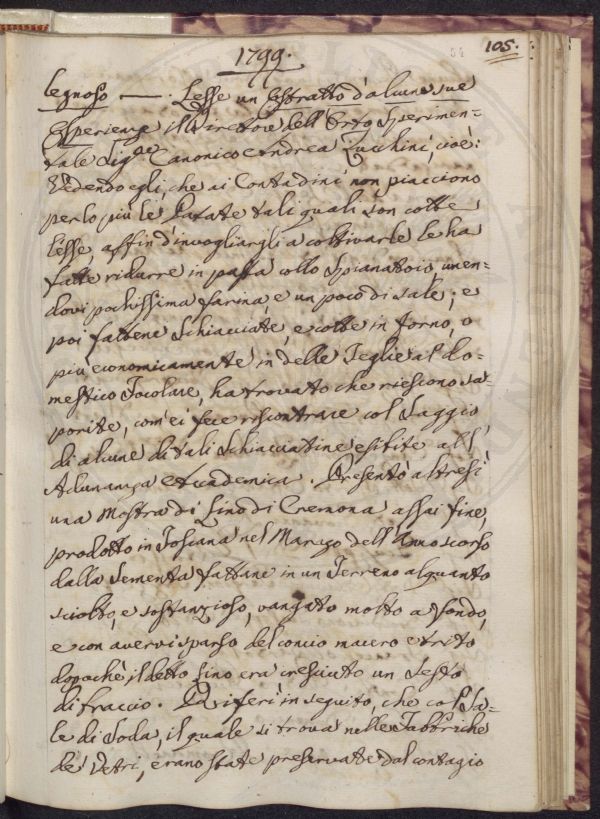 1799.
54 105.
legnoso —. Lesse un Estratto d'alcune sue
Esperienze il Direttore dell'Orto Sperimen-
tale Sigre Canonico Andrea Zucchini, cioè:
Vedendo egli, che ai Contadini non piacciono
per lo più le Patate tali quali son cotte
lesse, affin d'invogliargli a coltivarle le ha
fatte ridurre in pasta collo Spianatoio, unen-
dovi pochissima farina, e un poco di sale; e
poi fattene Schiacciate, e cotte in forno, o
più economicamente in delle Teglie al do-
mestico Focolare, ha trovato che riescono sa-
porite, com'ei fece riscontrare col Saggio
di alcune di tali Schiacciatine esibite all'
Adunanza Accademica. Presentò altresì
una Mostra di Lino di Cremona assai fine,
prodotto in Toscana nel Marzo dell'Anno scorso
dalla Sementa fattane in un Terreno alquanto
sciolto, e sostanzioso, vangato molto a fondo,
e con avervi sparso del concio macero e trito
dopochè il detto Lino era cresciuto un Sesto
di braccio. Riferì in seguito, che col Sa-
le di Soda, il quale si trova nelle Fabbriche
de' Vetri, erano state preservate dal contagio